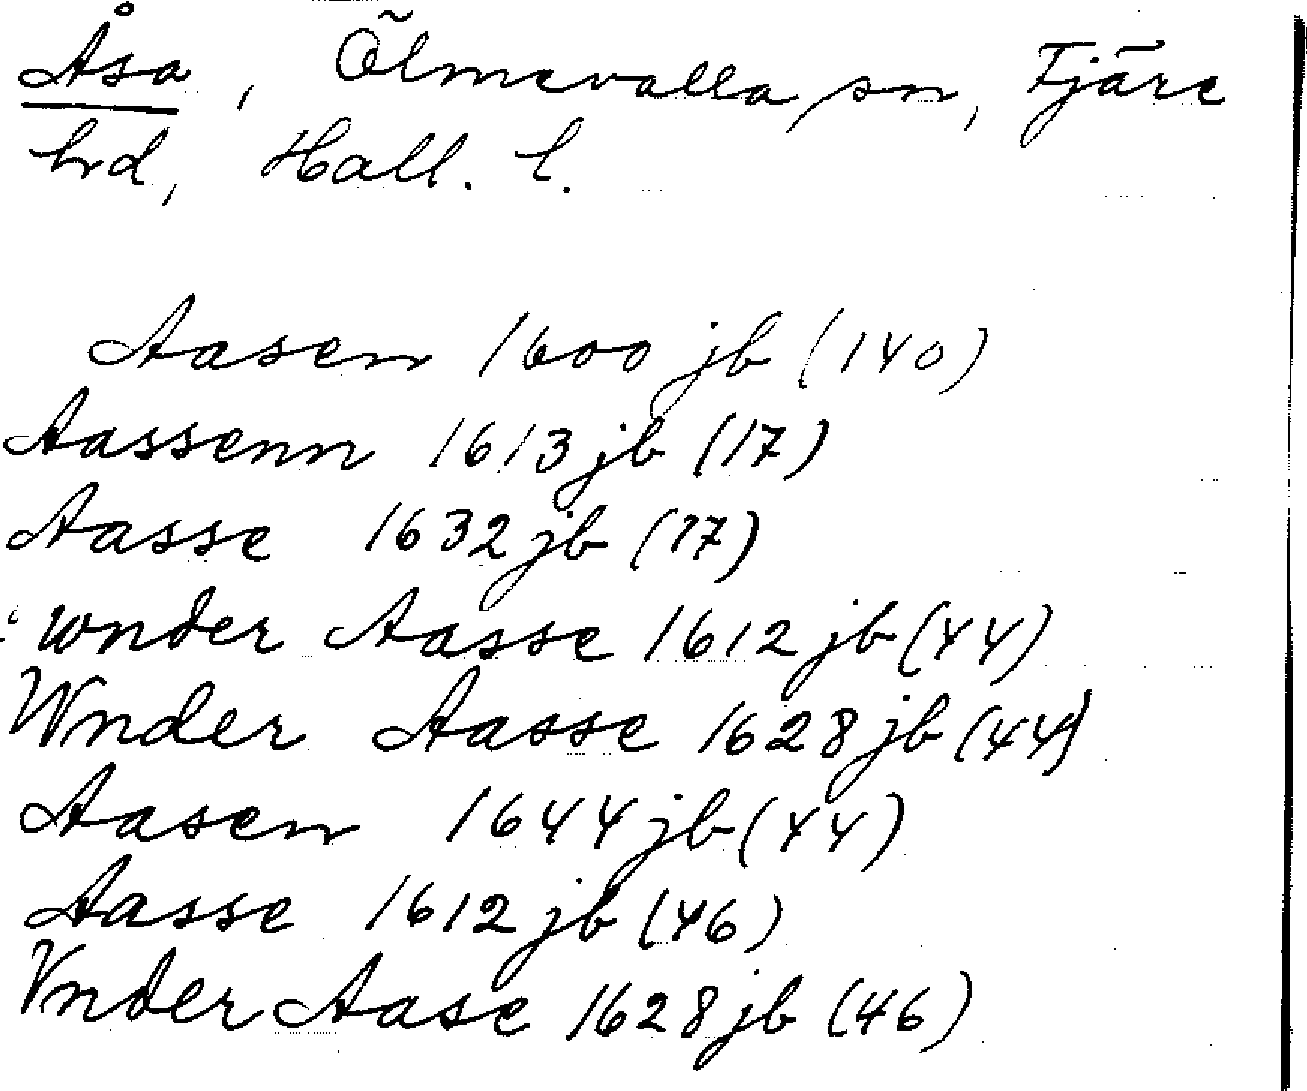 Åsa, Ölmevalla sn, Fjäre
hd, Hall. l.
Aasen 1600 jb (140)
Aassenn 1613 jb (17)
Aasse 1632 jb (17)
wnder Aasse 1612 jb (44)
Wnder Aasse 1628 jb (44)
Aasen 1644 jb (44)
Aasse 1612 jb (46)
Vnder Aase 1628 jb (46)